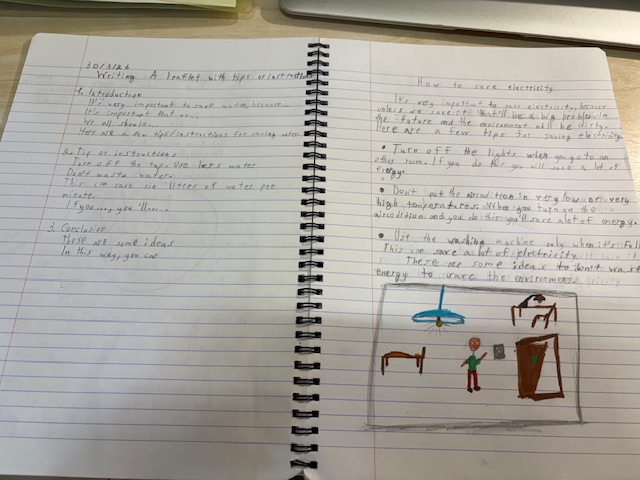 30/3/26
Writing A leaflet with tips or instructions
1. Introduction
It's very important to save water, because...
It's important that we...
We all should...
Here are a few tips/instructions for saving water
2. Tip or instructions
Turn off the tap. Use less water
Don't waste water.
This can save six litter of water per
minute.
If you..., you'll....
3. Conclusion
These are some ideas
In this way, you can
How to save electricity
It's very important to save electricity, because
unless we save it that'll be a big problem in
the future and the environment will be dirty.
Here are a few tips for saving electricity
• Turn off the lights when you go to an
other room. If you do this you will save a lot of
energy.
• Don't put the aircodition in very low or very
high temperatures. When you turn on the
aircodition and you do this you'll save a lot of energy.
• Use the washing machine only when it's full
This can save a lot of electricity
These are some ideas to don't wast
energy to save the environment